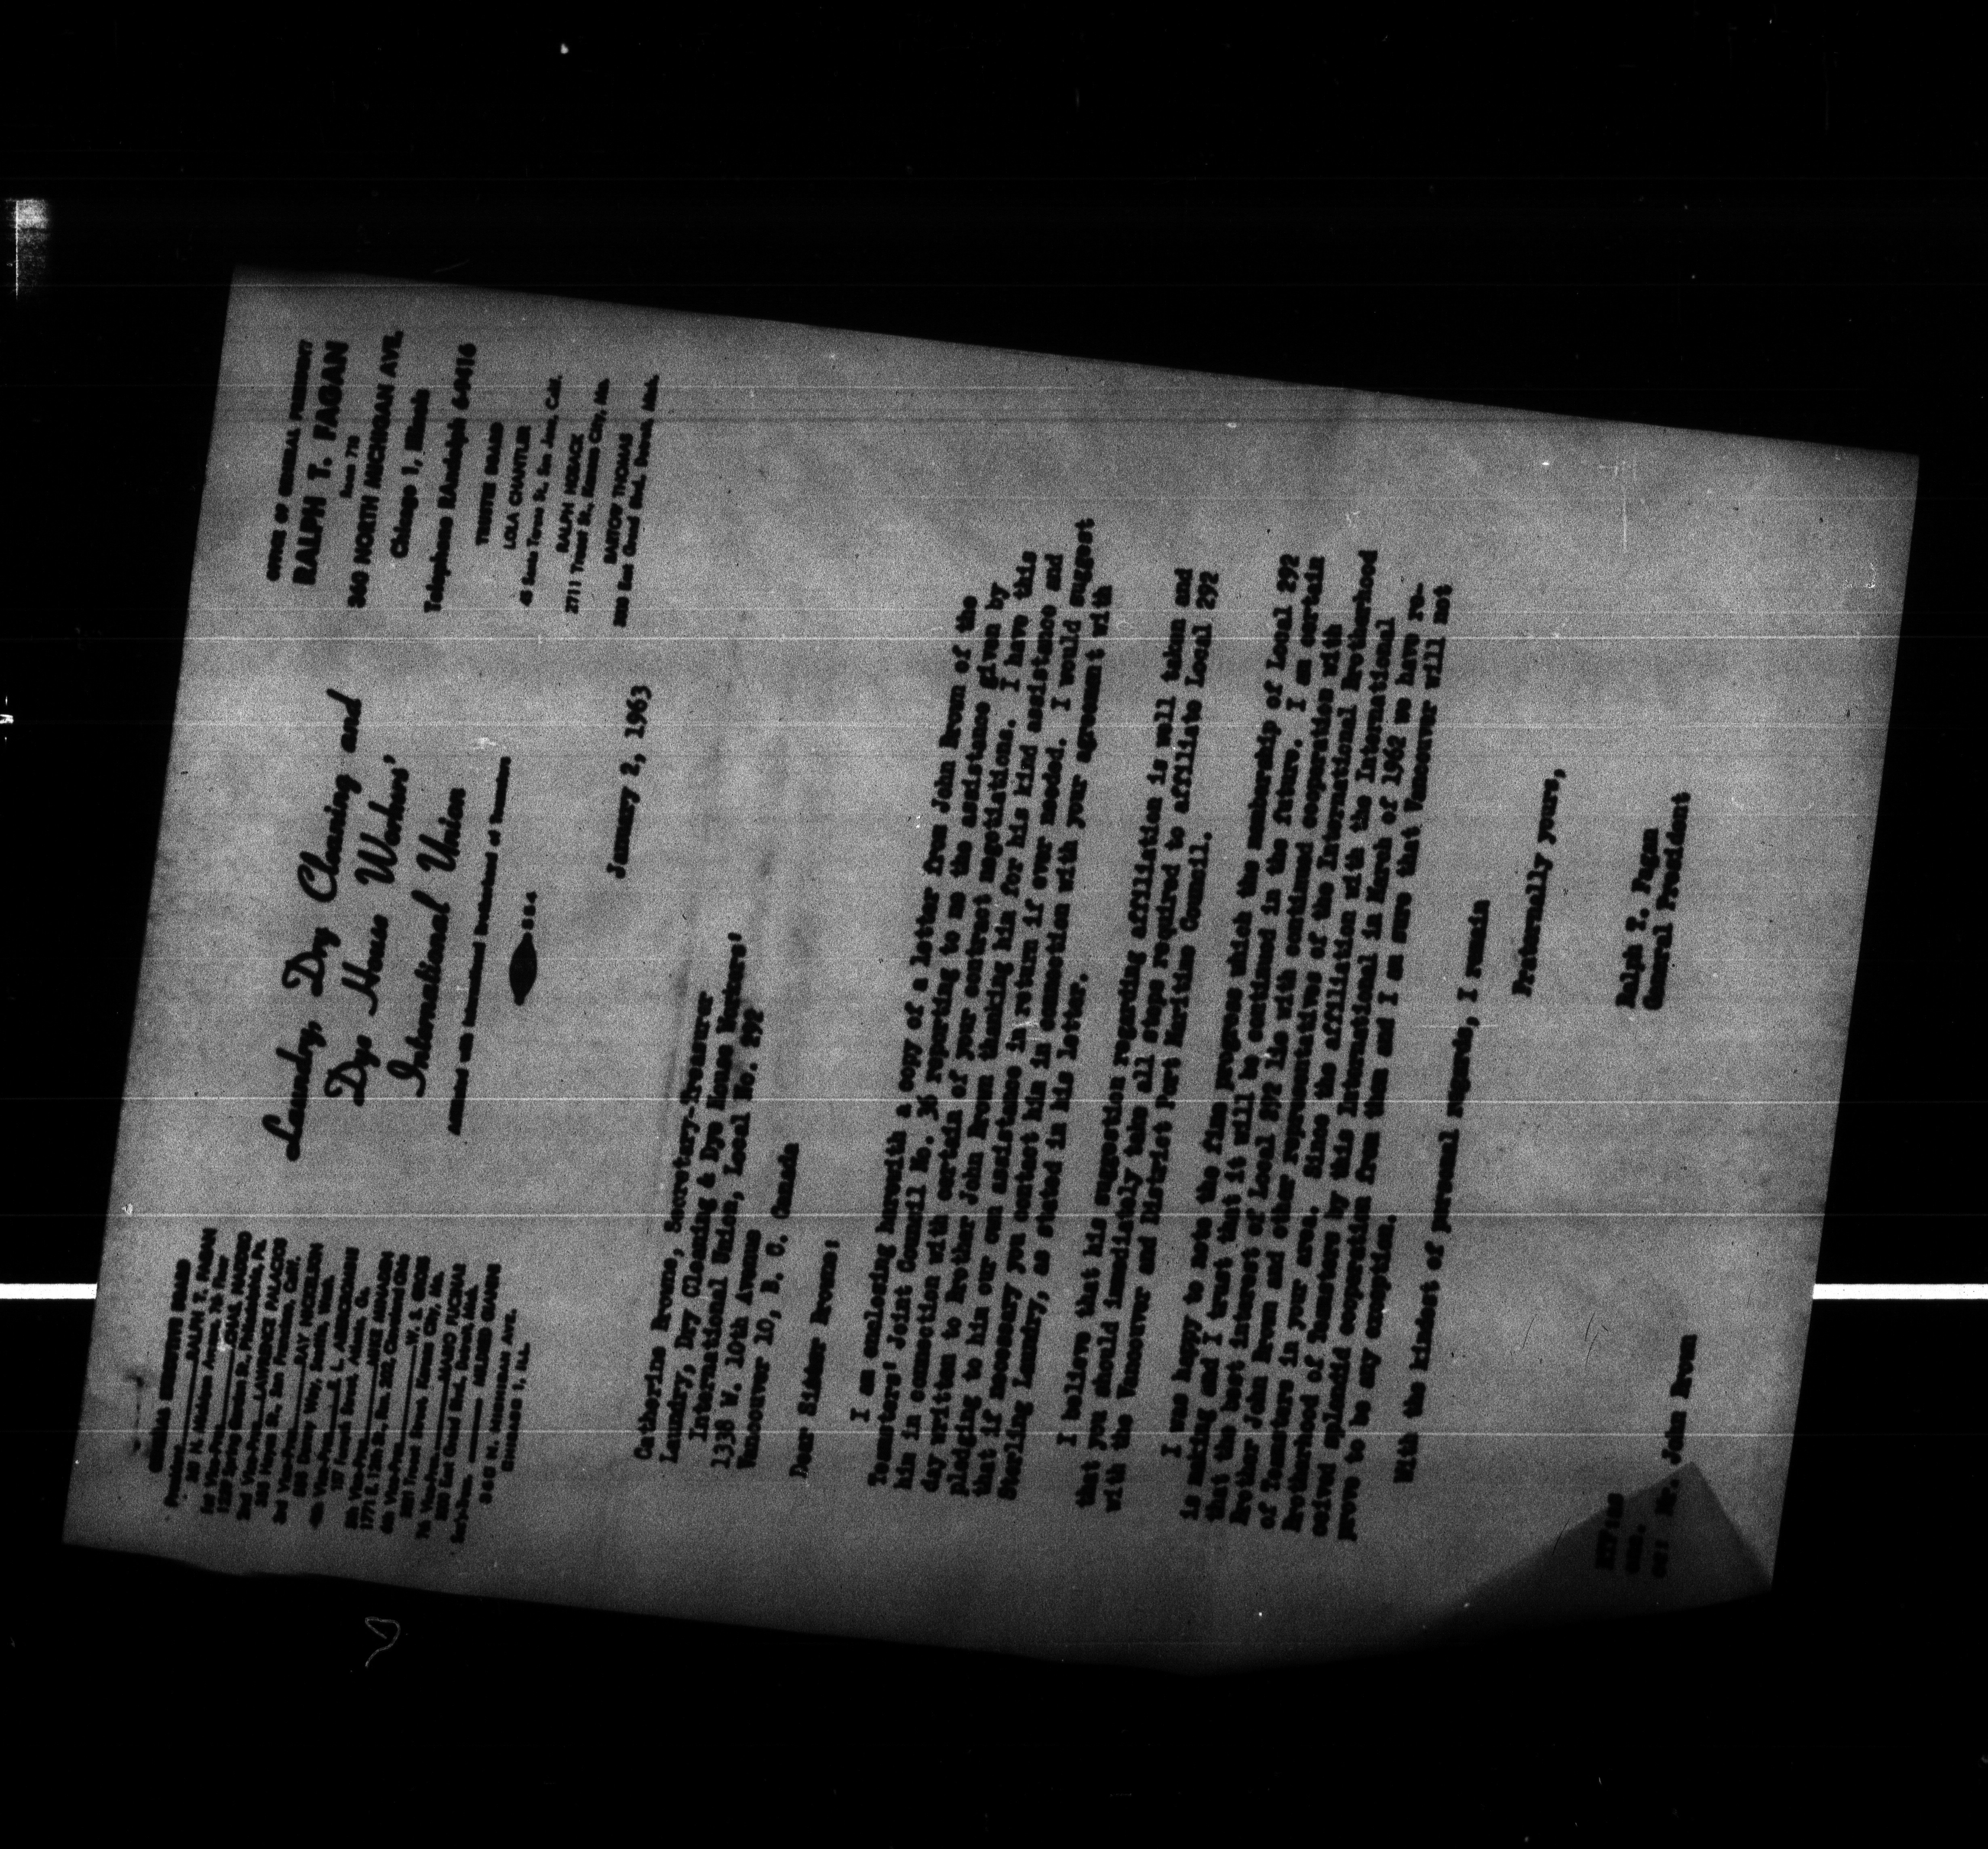 GENERAL EXECUTIVE BOARD
President RALPH T. FAGAN
1st Vice-Pres.
2nd Vice-Pres. LAWRENCE PALACIOS
3rd Vice-Pres. RAY NICKELSON
4th Vice-Pres. E. L. ABERCROMBIE
5th Vice-Pres. MIKE
6th Vice-Pres. W. S. GROSS
7th Vice-Pres.
Sec'y-Treas.
360 N. MICHIGAN AVE.
CHICAGO 1, ILL.
Laundry, Dry Cleaning and
Dye House Workers'
International Union
Affiliated with International Brotherhood of Teamsters
OFFICE OF GENERAL PRESIDENT
RALPH T. FAGAN
360 NORTH MICHIGAN AVE.
Chicago 1, Illinois
Telephone RAndolph 6-9416
TRUSTEE BOARD
LOLA CHANTLER
RALPH
2711 Troost St., Kansas City, Mo.
THOMAS
January 2, 1963
Catherine Browne, Secretary-Treasurer
Laundry, Dry Cleaning & Dye House Workers'
International Union, Local No. 292
1338 W. 10th Avenue
Vancouver 10, B. C. Canada
Dear Sister Browne:
I am enclosing herewith a copy of a letter from John Brown of the
Teamsters' Joint Council No. 36 reporting to me the assistance given by
him in connection with certain of your contract negotiations. I have this
day written to Brother John Brown thanking him for his kind assistance and
pledging to him our own assistance in return if ever needed. I would suggest
that if necessary you contact him in connection with your agreement with
Sterling Laundry, as stated in his letter.
I believe that his suggestion regarding affiliation is well taken and
that you should immediately take all steps required to affiliate Local 292
with the Vancouver and District Port Maritime Council.
I was happy to note the fine progress which the membership of Local 292
is making and I trust that it will be continued in the future. I am certain
that the best interest of Local 292 lie with continued cooperation with
Brother John Brown and other representatives of the International Brotherhood
of Teamsters in your area. Since the affiliation with the International
Brotherhood of Teamsters by this International in March of 1962 we have re-
ceived splendid cooperation from them and I am sure that Vancouver will not
prove to be any exception.
With the kindest of personal regards, I remain
Fraternally yours,
Ralph T. Fagan
General President
enc.
cc: Mr. John Brown